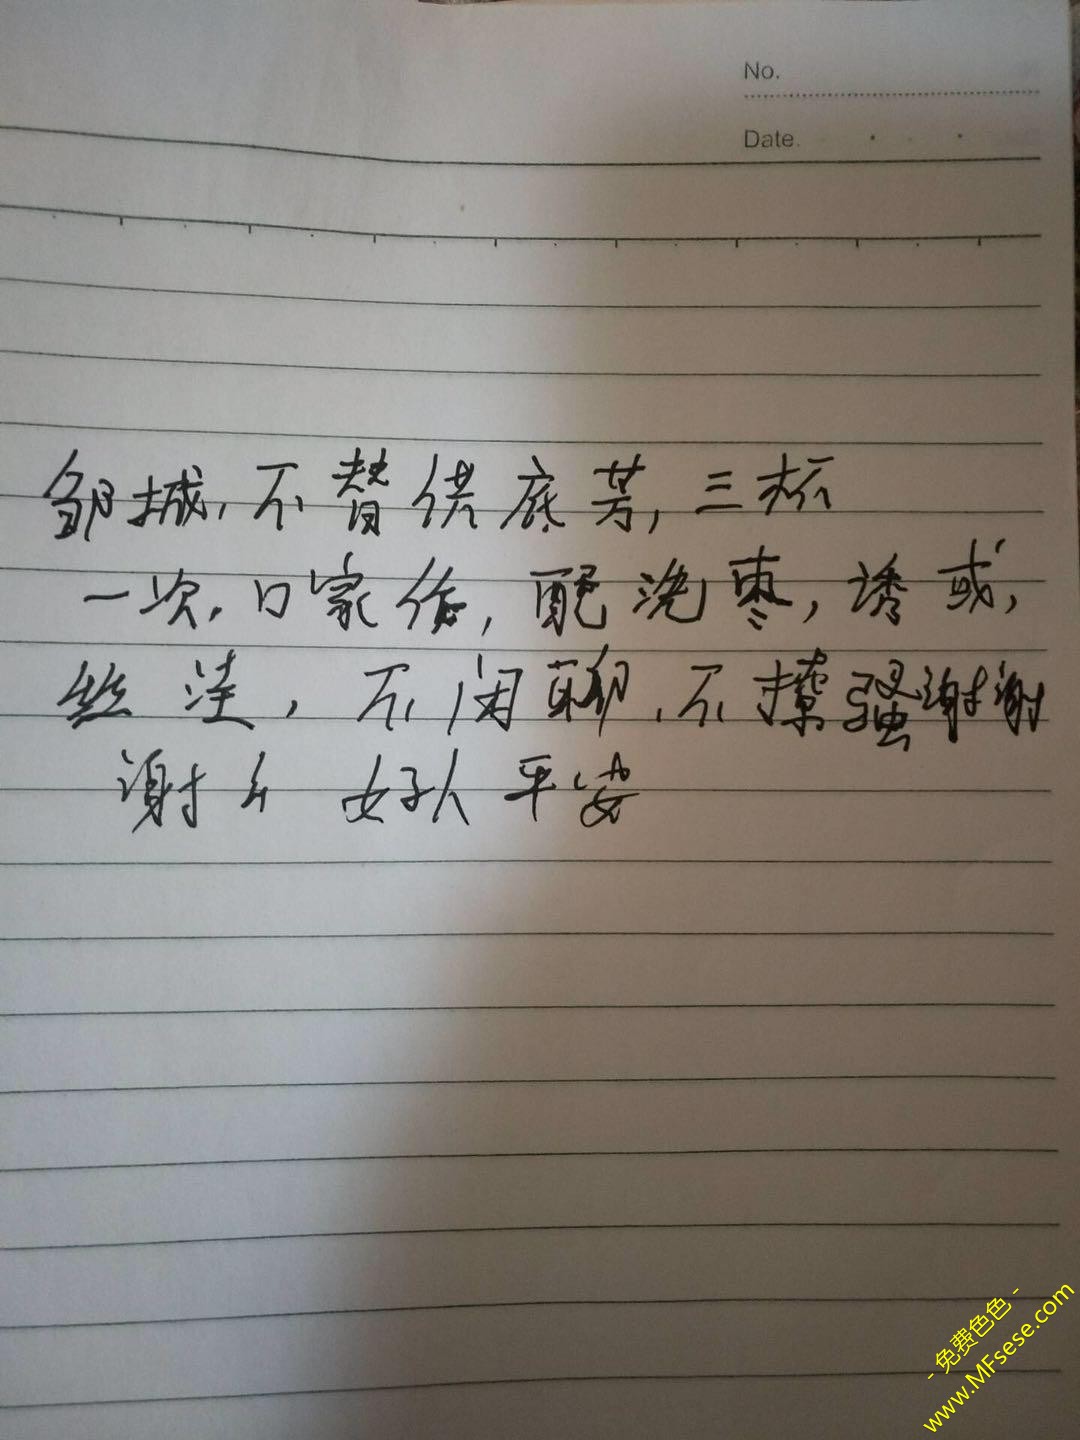 No.
Date.
邹城，不替供底芳，三杯
一次，口家偷，配洗枣，诱或，
丝洼，不闲聊，不撩骚谢谢
谢么 好人平安
- 免费色色 -
www.MFsese.com